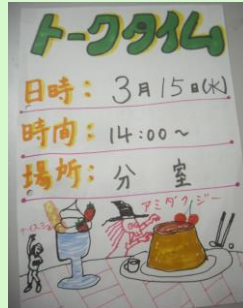 トークタイム
日時: 3月15日(水)
時間: 14:00～
場所: 分室
アミダクジー